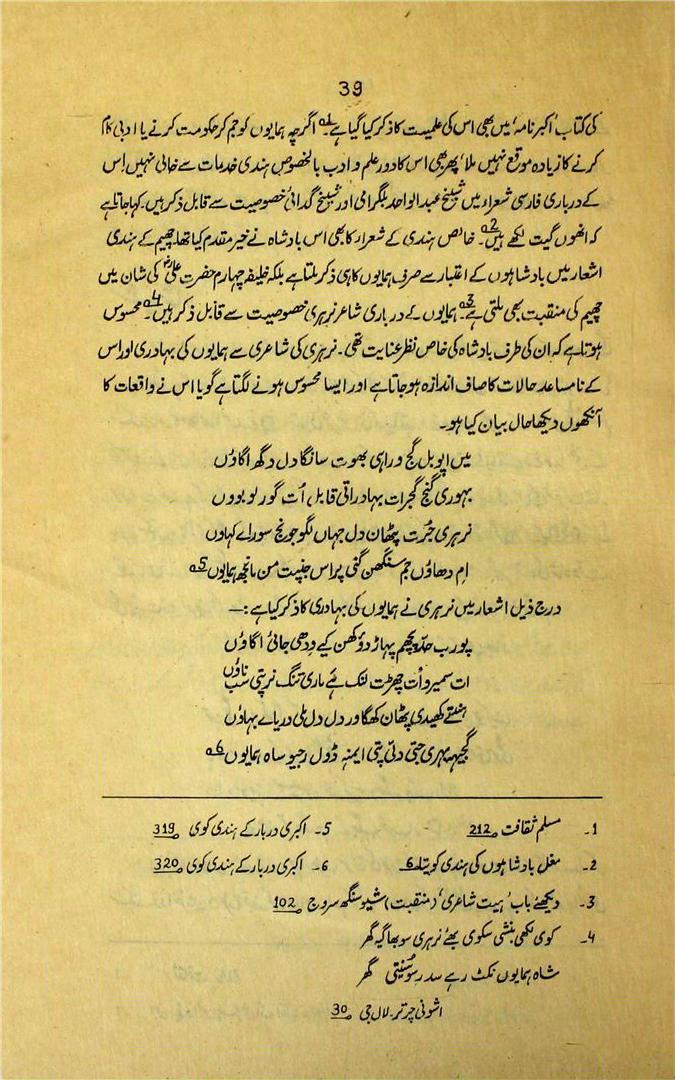 39
کی کتاب 'اکبر نامہ' میں بھی اس کی علمیت کا ذکر کیا گیا ہے۔1 اگرچہ ہمایوں کو جم کر حکومت کرنے یا ادبی کام
کرنے کا زیادہ موقع نہیں ملا' پھر بھی اس کا دور علم و ادب بالخصوص ہندی خدمات سے خالی نہیں۔ اس
کے درباری فارسی شعراء میں شیخ عبدالواحد بلگرامی اور شیخ گدائی خصوصیت سے قابل ذکر ہیں۔ کہا جاتا ہے
کہ انھوں گیت لکھے ہیں۔2 خالص ہندی کے شعرار کا بھی اس بادشاہ نے خیر مقدم کیا تھا۔ چھیم کے ہندی
اشعار میں بادشاہوں کے اعتبار سے صرف ہمایوں کا ہی ذکر ملتا ہے بلکہ خلیفہ چہارم حضرت علیؓ کی شان میں
چھیم کی منقبت بھی ملتی ہے۔3 ہمایوں کے درباری شاعر نرہری خصوصیت سے قابل ذکر ہیں۔4 محسوس
ہوتا ہے کہ ان کی طرف بادشاہ کی خاص نظر عنایت تھی۔ نرہری کی شاعری سے ہمایوں کی بہادری اور اس
کے نامساعد حالات کا صاف اندازہ ہو جاتا ہے اور ایسا محسوس ہونے لگتا ہے گویا اس نے واقعات کا
آنکھوں دیکھا حال بیان کیا ہو۔
میں اپوبل گج وراہی بھوت سانگا دل دگھراگاؤں
بہوری گنج گجرات بہادراتی قابل اُت گور لوبووں
نرہری جُرت پٹھان دل جہاں لگو جونچ سوراے کہاوں
اِم دھاؤں جم سنگھن گئی پراس جنپت من مانجھ ہمایوں5
درج ذیل اشعار میں نرہری نے ہمایوں کی بہادری کا ذکر کیا ہے :—
پورب حدّ پچھم پہاڑ دؤکھن کیے ودھی جائی اگاؤں
ات سمیرو اُت چھڑت لنک لئے ماری تنگ نرپتی سب ناؤں
ہنتے کھیدی پٹھان کھگا ور دل دل ملی دریاے بہاؤں
گجیہہ بہری جتی دلّی پتی ایمنہ ڈول رجیو ساہ ہمایوں6
1۔ مسلم ثقافت 212
2۔ مغل بادشاہوں کی ہندی کویتا 6
3۔ دیکھئے باب 'ہیت شاعری' (منقبت) شیو سنگھ سروج 102
4۔ کوی لکھی بنشی سکوی بھئے نرہری سوبھاگیہ گھر
شاہ ہمایوں نکٹ رہے سدر سوسُنیتی گھر
اشونی چرتر۔ لال جی 30
5۔ اکبری دربار کے ہندی کوی 319
6۔ اکبری دربار کے ہندی کوی 320